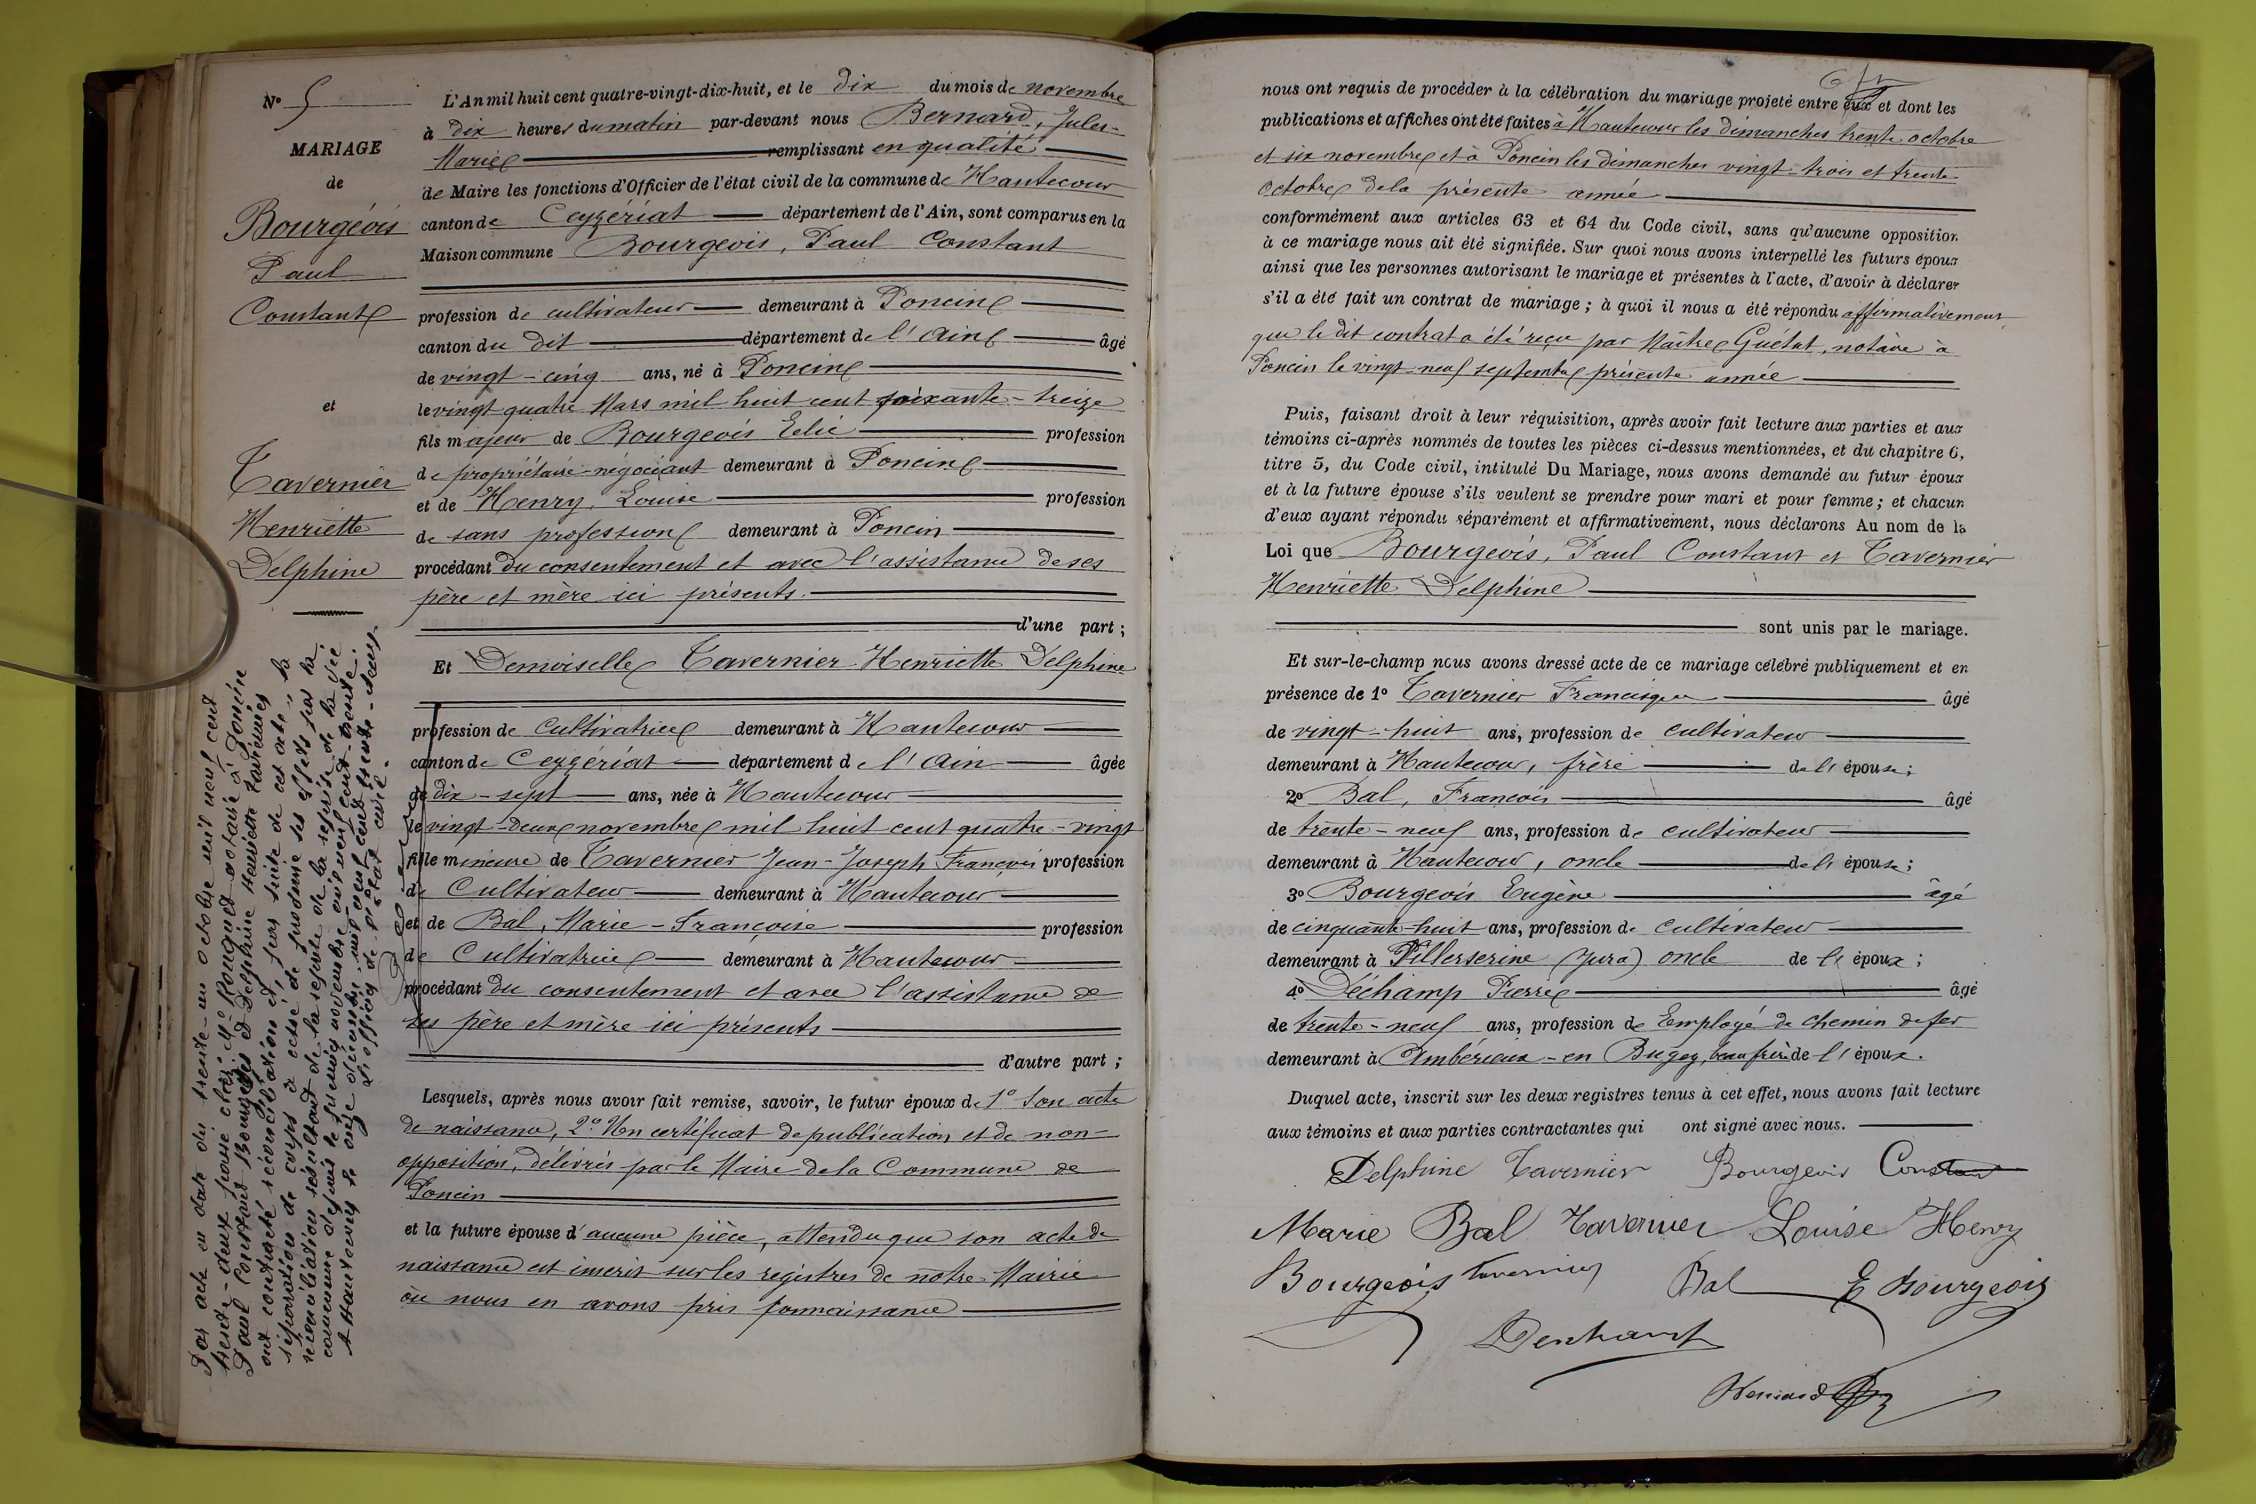 N° 5
MARIAGE
de
Bourgeois
Paul
Constant
et
Tavernier
Henriette
Delphine
L'An mil huit cent quatre-vingt-dix-huit, et le dix du mois de novembre
à dix heures du matin par-devant nous Bernard, Jules-
Marie remplissant en qualité
de Maire les fonctions d'Officier de l'état civil de la commune de Hautecour
canton de Ceyzériat département de l'Ain, sont comparus en la
Maison commune Bourgeois, Paul Constant
profession de cultivateur demeurant à Poncin
canton du dit département de l'Ain âgé
de vingt-cinq ans, né à Poncin
le vingt quatre Mars mil huit cent soixante-treize
fils majeur de Bourgeois Elie profession
de propriétaire-négociant demeurant à Poncin
et de Henry, Louise profession
de sans profession demeurant à Poncin
procédant du consentement et avec l'assistance de ses
père et mère ici présents.
d'une part ;
Et Demoiselle Tavernier Henriette Delphine
profession de cultivatrice demeurant à Hautecour
canton de Ceyzériat département de l'Ain âgée
de dix-sept ans, née à Hautecour
le vingt-deux novembre mil huit cent quatre-vingt
fille mineure de Tavernier Jean-Joseph François profession
de Cultivateur demeurant à Hautecour
et de Bal, Marie-Françoise profession
de Cultivatrice demeurant à Hautecour
procédant du consentement et avec l'assistance de
ses père et mère ici présents
d'autre part ;
Lesquels, après nous avoir fait remise, savoir, le futur époux de 1° Son acte
de naissance, 2° Un certificat de publication et de non-
opposition, délivrés par le Maire de la Commune de
Poncin
et la future épouse d'aucune pièce, attendu que son acte de
naissance est inscrit sur les registres de notre Mairie
où nous en avons pris connaissance
Par acte en date du trente-un octobre mil neuf cent
trente-deux passé chez Me notaire à Poncin
Paul Constant Bourgeois et Delphine Henriette Tavernier
ont contracté réconciliation et, par suite de cet acte, la
séparation de corps a cessé de produire ses effets par la
réconciliation résultant de la reprise de la vie
commune depuis le premier novembre mil neuf cent trente.
A Hautecour le onze décembre mil neuf cent trente-deux
L'officier de l'état civil.
nous ont requis de procéder à la célébration du mariage projeté entre eux et dont les
publications et affiches ont été faites à Hautecour les dimanches trente octobre
et six novembre et à Poncin les dimanches vingt-trois et trente
Octobre de la présente année
conformément aux articles 63 et 64 du Code civil, sans qu'aucune opposition
à ce mariage nous ait été signifiée. Sur quoi nous avons interpellé les futurs époux
ainsi que les personnes autorisant le mariage et présentes à l'acte, d'avoir à déclarer
s'il a été fait un contrat de mariage ; à quoi il nous a été répondu affirmativement
que le dit contrat a été reçu par Maître Guétat, notaire à
Poncin le vingt-neuf septembre présente année
Puis, faisant droit à leur réquisition, après avoir fait lecture aux parties et aux
témoins ci-après nommés de toutes les pièces ci-dessus mentionnées, et du chapitre 6,
titre 5, du Code civil, intitulé Du Mariage, nous avons demandé au futur époux
et à la future épouse s'ils veulent se prendre pour mari et pour femme ; et chacun
d'eux ayant répondu séparément et affirmativement, nous déclarons Au nom de la
Loi que Bourgeois, Paul Constant et Tavernier
Henriette Delphine
sont unis par le mariage.
Et sur-le-champ nous avons dressé acte de ce mariage célébré publiquement et en
présence de 1° Tavernier Francisque âgé
de vingt-huit ans, profession de cultivateur
demeurant à Hautecour, frère de l'épouse ;
2° Bal, François âgé
de trente-neuf ans, profession de cultivateur
demeurant à Hautecour, oncle de l'épouse ;
3° Bourgeois Eugène âgé
de cinquante-huit ans, profession de cultivateur
demeurant à Villerserine (Jura) oncle de l'époux ;
4° Déchamp Pierre âgé
de trente-neuf ans, profession de Employé de chemin de fer
demeurant à Ambérieux-en Bugey, beau frère de l'époux.
Duquel acte, inscrit sur les deux registres tenus à cet effet, nous avons fait lecture
aux témoins et aux parties contractantes qui ont signé avec nous.
Delphine Tavernier Bourgeois Constant
Marie Bal Tavernier Louise Henry
Bourgeois Tavernier Bal E Bourgeois
Deschamps
Bernard